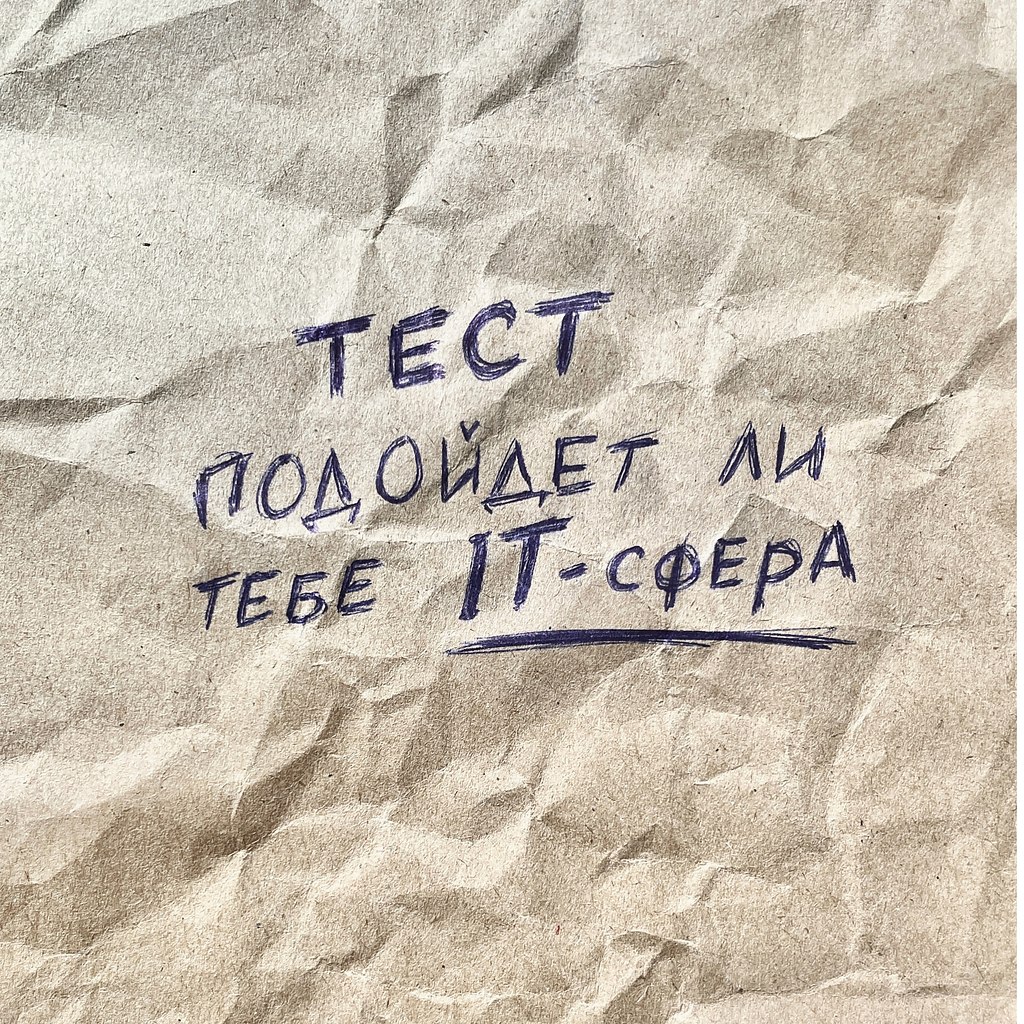 ТЕСТ
ПОДОЙДЕТ ЛИ
ТЕБЕ IT-СФЕРА